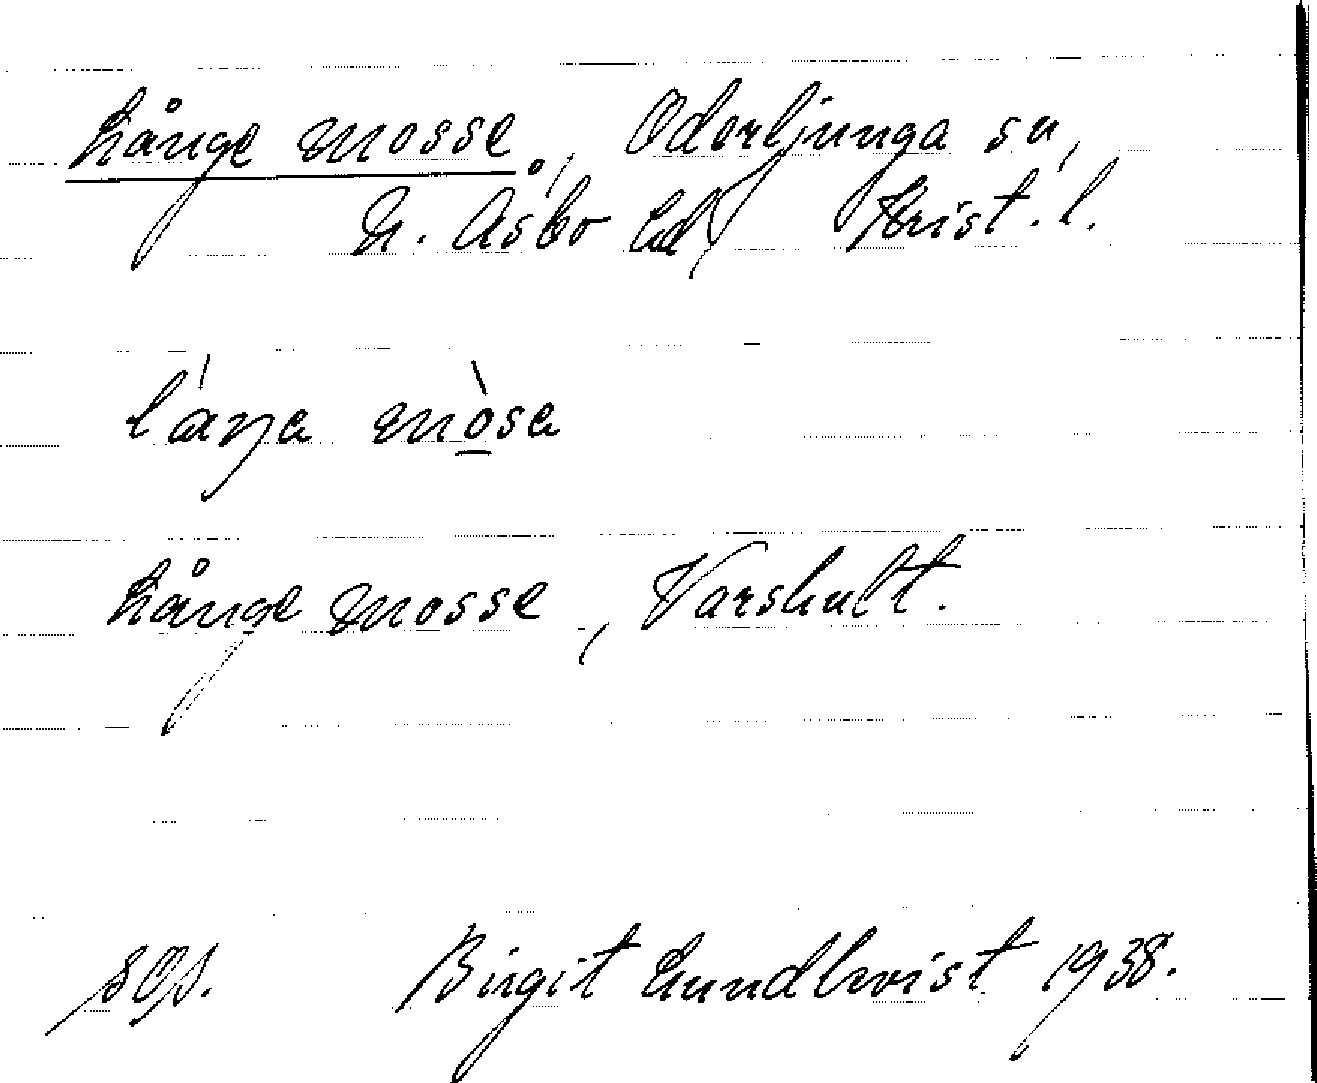 Långe mosse, Oderljunga sn,
N. Åsbo hd, Krist. l.
láŋa mòsa
Långe mosse, Varshult.
sgs. Birgit Lundkvist 1938.